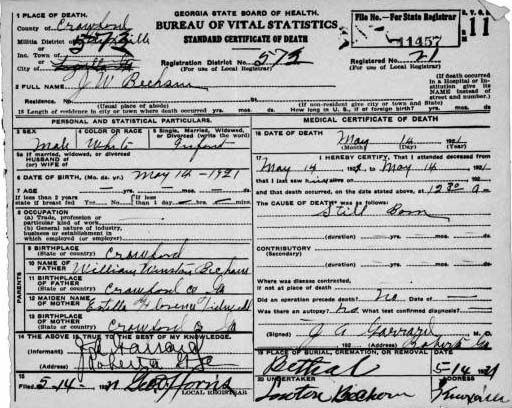 GEORGIA STATE BOARD OF HEALTH.
BUREAU OF VITAL STATISTICS
STANDARD CERTIFICATE OF DEATH
File No.—For State Registrar
11457
11
1 PLACE OF DEATH.
County of Crawford
Militia District
Inc. Town of
City of
Registration District No. 573
(For use of Local Registrar)
Registered No. 21
(For use of Local Registrar)
(If death occurred in a Hospital or Institution give its NAME instead of street and number.)
2 FULL NAME J. W. Becham
Residence. No. St.
(Usual place of abode) (If non-resident give city or town and State)
Length of residence in city or town where death occurred yrs. mos. ds. How long in U. S., if of foreign birth? yrs. mos. ds.
PERSONAL AND STATISTICAL PARTICULARS.
3 SEX
Male
4 COLOR OR RACE
White
5 Single, Married, Widowed, or Divorced (write the word)
Infant
5a If married, widowed, or divorced
HUSBAND of
(or) WIFE of
6 DATE OF BIRTH (Mo. da. yr.) May 14 - 1921
7 AGE yrs. mos. ds.
If less than 2 years state if breast fed
If less than 1 day hrs. mins.
8 OCCUPATION
(a) Trade, profession or particular kind of work
(b) General nature of industry, business or establishment in which employed (or employer)
9 BIRTHPLACE
(State or country) Crawford
PARENTS
10 NAME OF FATHER William Winston Becham
11 BIRTHPLACE OF FATHER
(State or country) Crawford Co Ga
12 MAIDEN NAME OF MOTHER Estelle
13 BIRTHPLACE OF MOTHER
(State or country) Crawford Co Ga
14 THE ABOVE IS TRUE TO THE BEST OF MY KNOWLEDGE.
(Informant)
(Address) Roberta
15
Filed 5-14 1921
LOCAL REGISTRAR
MEDICAL CERTIFICATE OF DEATH
16 DATE OF DEATH
May 14 1921
(Month) (Day) (Year)
17 I HEREBY CERTIFY, That I attended deceased from
May 14 1921 to May 14 1921
that I last saw h alive on 192
and that death occurred, on the date stated above, at 12 30 a
THE CAUSE OF DEATH was as follows:
Still Born
(duration) yrs. mos. ds.
CONTRIBUTORY
(Secondary)
(duration) yrs. mos. ds.
Where was disease contracted, if not at place of death?
Did an operation precede death? No Date of
Was there an autopsy? No What test confirmed diagnosis?
(Signed) J. A. Garrard M. D.
192 (Address) Roberta Ga
19 PLACE OF BURIAL, CREMATION, OR REMOVAL DATE
Bethel 5-14 1921
20 UNDERTAKER ADDRESS
Becham